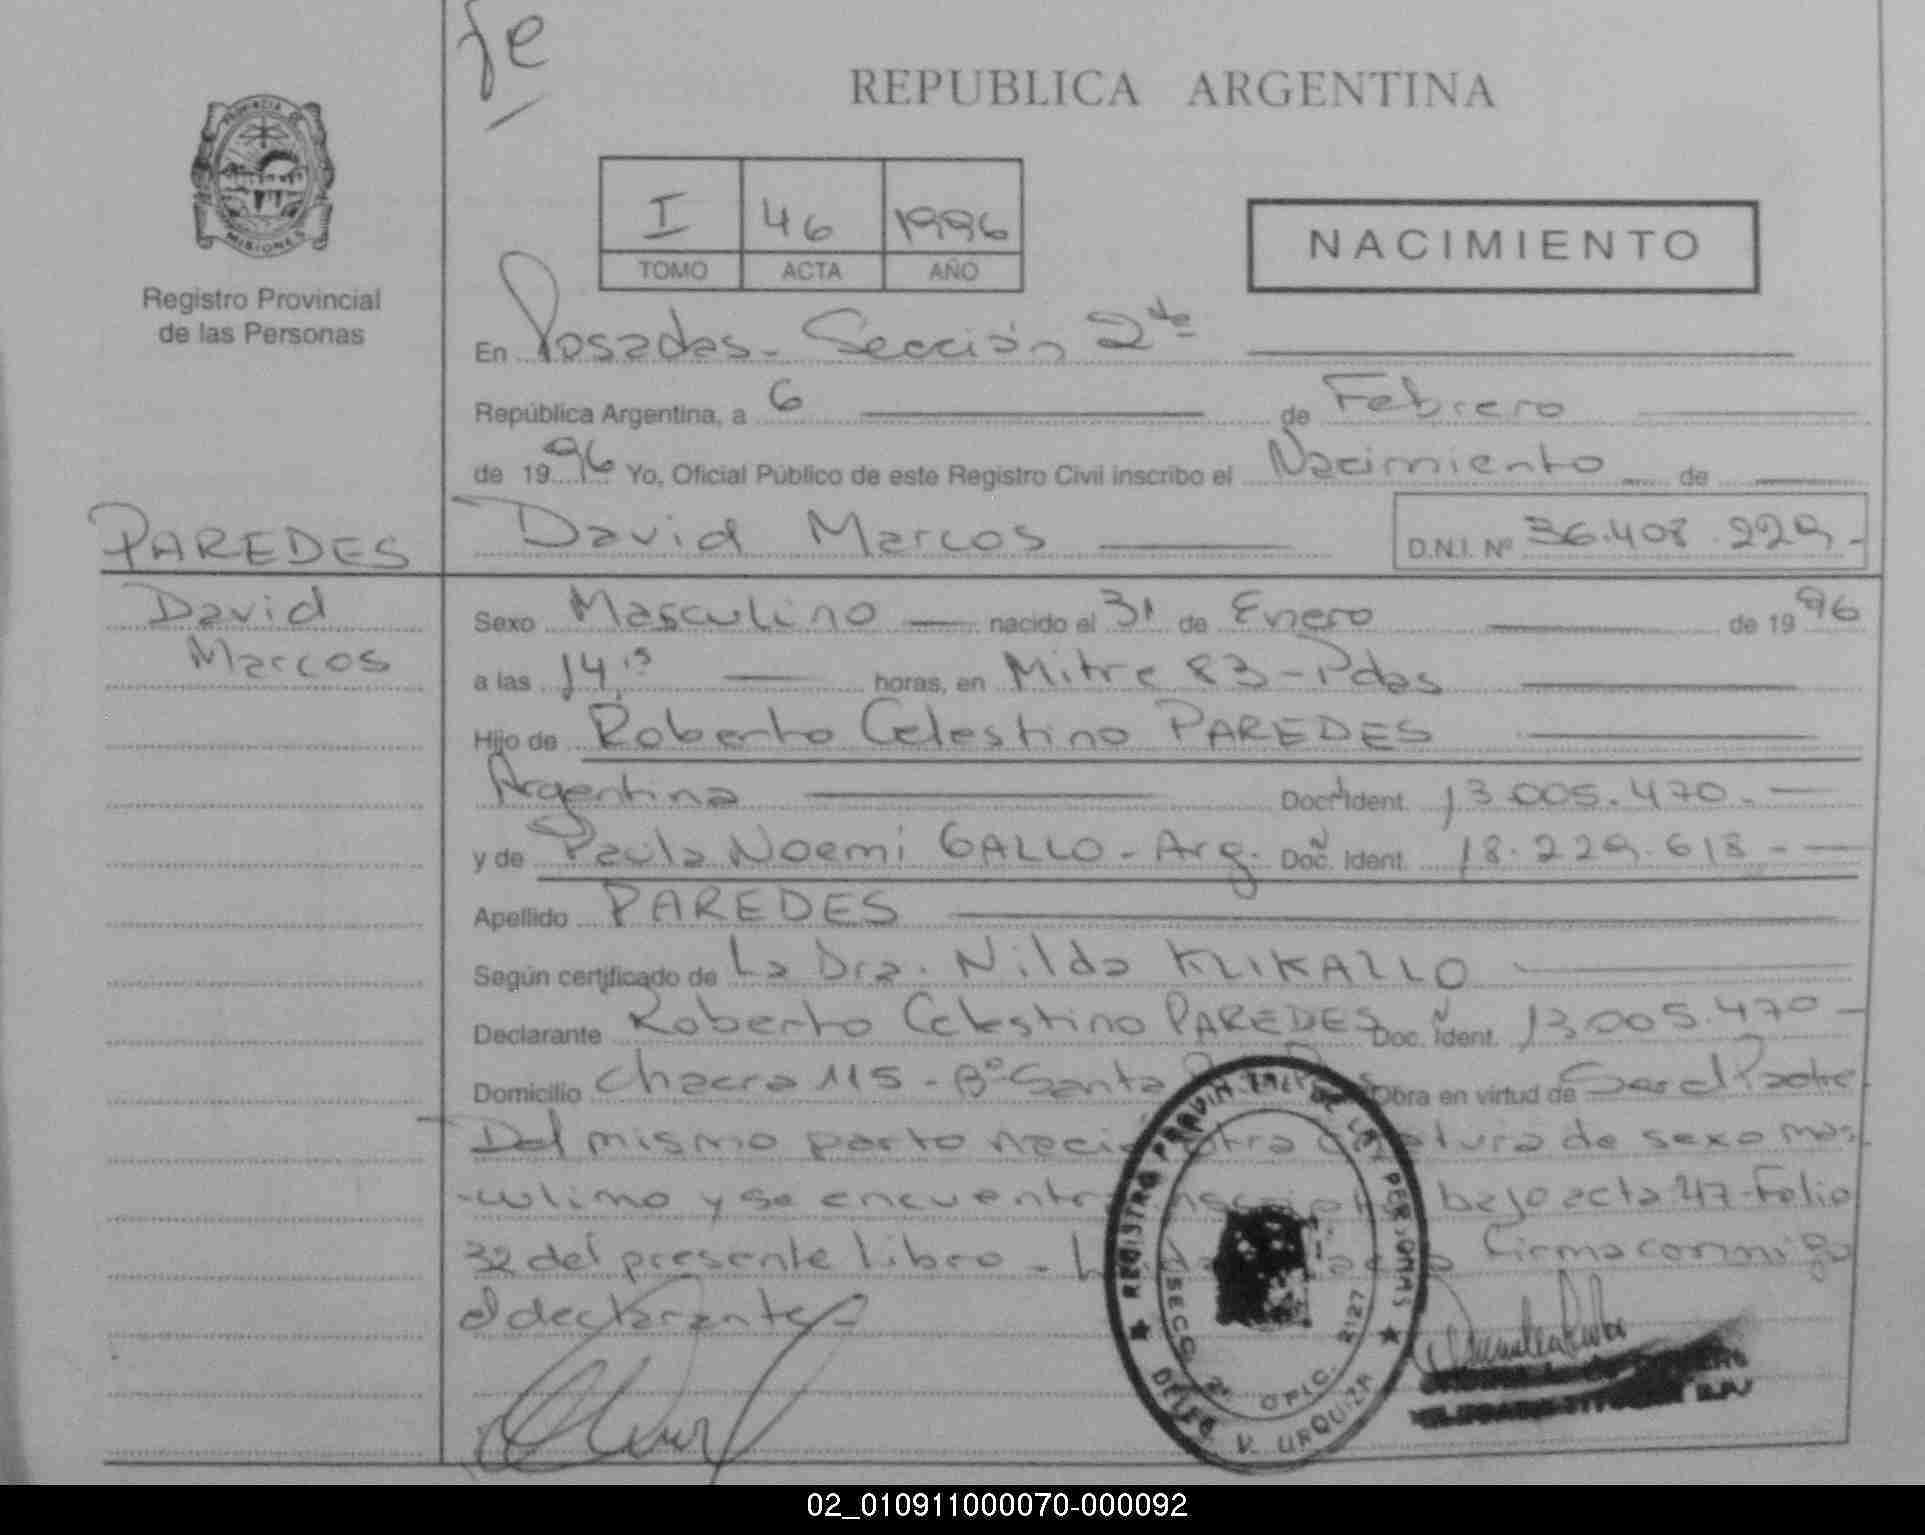 fe
REPUBLICA ARGENTINA
PROVINCIA DE
MISIONES
Registro Provincial
de las Personas
I 46 1996
TOMO ACTA AÑO
NACIMIENTO
En Posadas - Sección 2da
República Argentina, a 6 de Febrero
de 1996 Yo, Oficial Público de este Registro Civil inscribo el Nacimiento de
PAREDES David Marcos D.N.I. Nº 36.408.229.-
David
Marcos
Sexo Masculino nacido el 31 de Enero de 1996
a las 14,15 horas, en Mitre 83 - Pdas
Hijo de Roberto Celestino PAREDES
Argentina Doc. Ident. 13.005.470.-
y de Paula Noemi GALLO - Arg. Doc. Ident. 18.229.618.-
Apellido PAREDES
Según certificado de La Dra. Nilda
Declarante Roberto Celestino PAREDES Doc. Ident. 13.005.470-
Domicilio Chacra 115 - Bº Santa Obra en virtud de Ser el Padre
Del mismo parto nació otra criatura de sexo mas-
-culino y se encuentra inscripto bajo acta 47 - Folio
32 del presente libro - firma conmigo
el declarante
REGISTRO PROVINCIAL DE LAS PERSONAS
SECC. 2ª OFIC. 2127
DELEG. V. URQUIZA
02_010911000070-000092